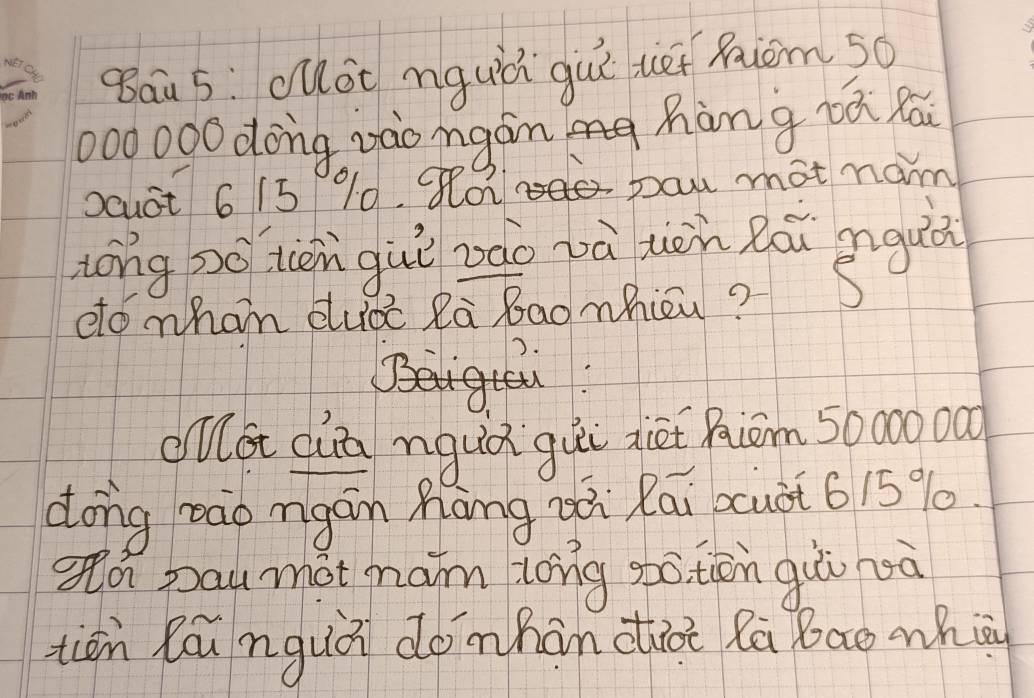 Bâu 5: Một người gửi tiết kiệm 50
000 000 đồng vào ngân hàng với lãi
xcuất 6 15 %. Hỏi sau một năm
tổng số tiền gửi vào và tiền lãi người
đó nhận được là bao nhiêu ? S
Bài giải :
Một cửa người gửi tiết kiệm 50 000 000
đồng vào ngân hàng với lãi xcuất 6 15 %.
Hỏi sau một năm tổng số tiền gửi và
tiền lãi người đó nhận được là bao nhiêu